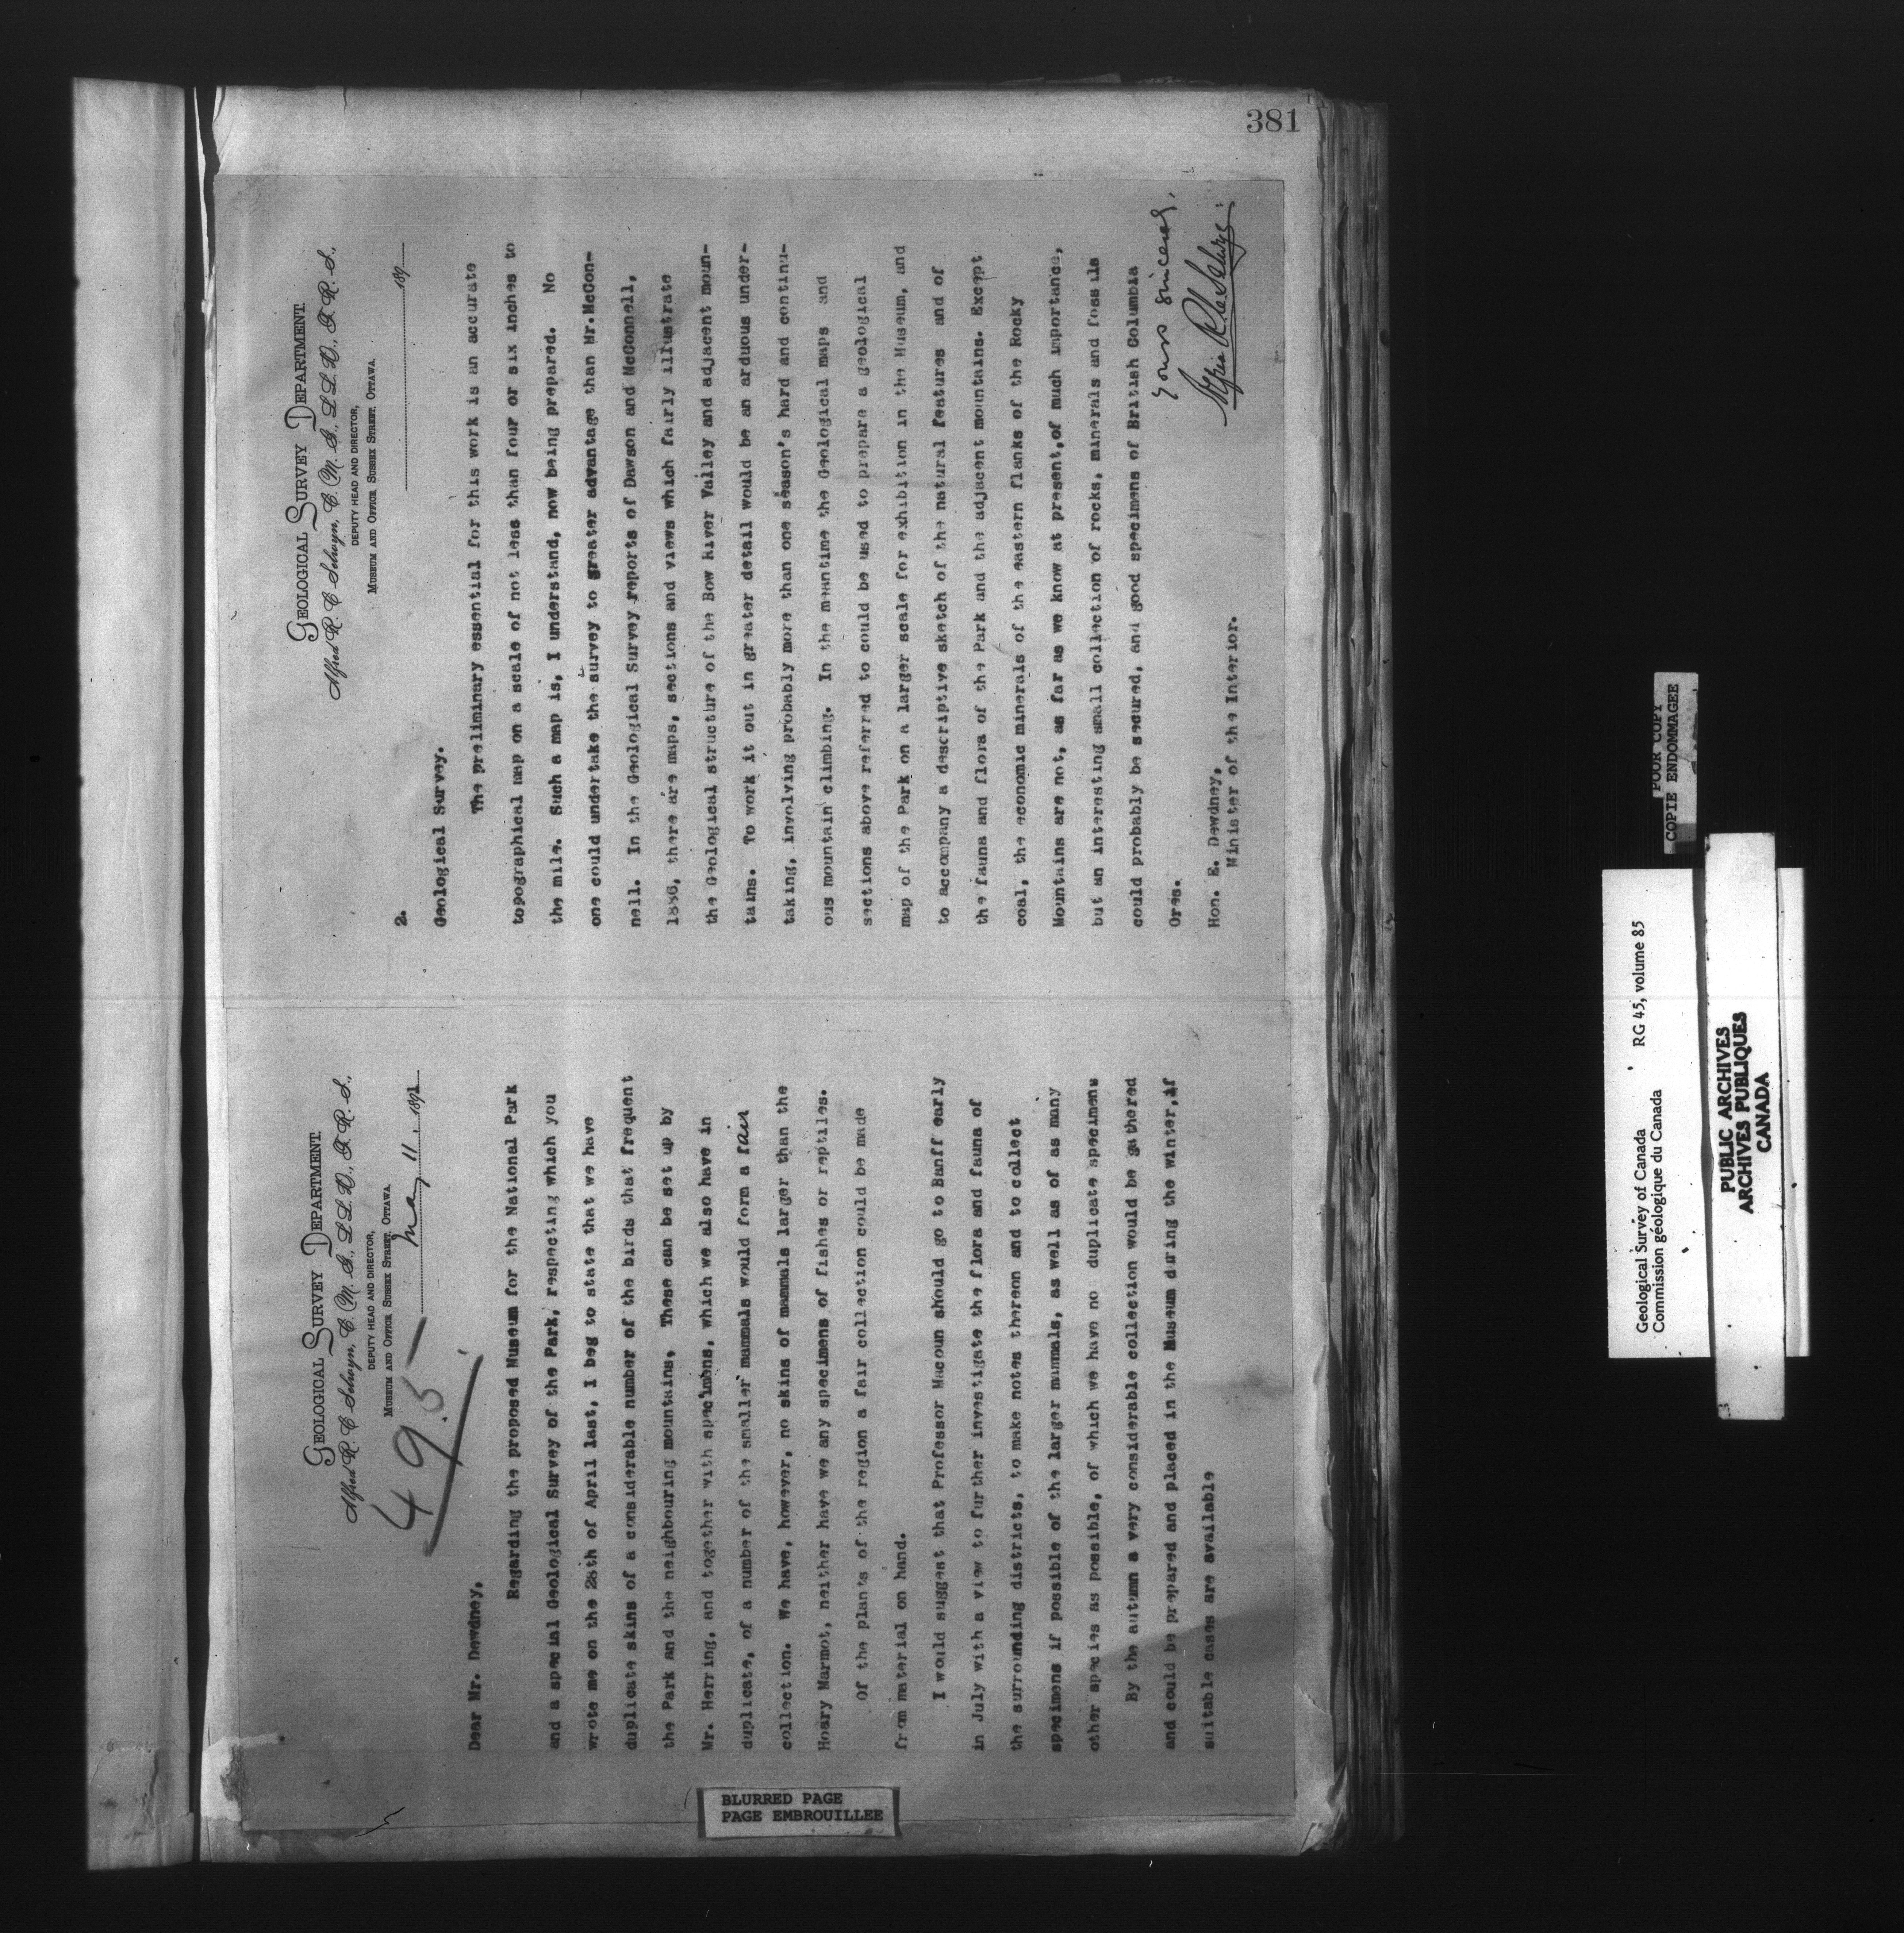 381
GEOLOGICAL SURVEY DEPARTMENT.
Alfred R. C. Selwyn, C. M. G., L L. D., F. R. S.,
DEPUTY HEAD AND DIRECTOR,
MUSEUM AND OFFICE SUSSEX STREET, OTTAWA.
May 11. 1891
495
Dear Mr. Dewdney,
Regarding the proposed Museum for the National Park
and a special Geological Survey of the Park, respecting which you
wrote me on the 28th of April last, I beg to state that we have
duplicate skins of a considerable number of the birds that frequent
the Park and the neighbouring mountains. These can be set up by
Mr. Herring, and together with specimens, which we also have in
duplicate, of a number of the smaller mammals would form a fair
collection. We have, however, no skins of mammals larger than the
Hoary Marmot, neither have we any specimens of fishes or reptiles.
Of the plants of the region a fair collection could be made
from material on hand.
I would suggest that Professor Macoun should go to Banff early
in July with a view to further investigate the flora and fauna of
the surrounding districts, to make notes thereon and to collect
specimens if possible of the larger mammals, as well as of as many
other species as possible, of which we have no duplicate specimens
By the autumn a very considerable collection would be gathered
and could be prepared and placed in the Museum during the winter, if
suitable cases are available
GEOLOGICAL SURVEY DEPARTMENT.
Alfred R. C. Selwyn, C. M. G., L L. D., F. R. S.,
DEPUTY HEAD AND DIRECTOR,
MUSEUM AND OFFICE, SUSSEX STREET, OTTAWA.
189
2.
Geological Survey.
The preliminary essential for this work is an accurate
topographical map on a scale of not less than four or six inches to
the mile. Such a map is, I understand, now being prepared. No
one could undertake the survey to greater advantage than Mr. McCon-
nell. In the Geological Survey reports of Dawson and McConnell,
1886, there are maps, sections and views which fairly illustrate
the Geological structure of the Bow River Valley and adjacent moun-
tains. To work it out in greater detail would be an arduous under-
taking, involving probably more than one season's hard and continu-
ous mountain climbing. In the meantime the Geological maps and
sections above referred to could be used to prepare a geological
map of the Park on a larger scale for exhibition in the Museum, and
to accompany a descriptive sketch of the natural features and of
the fauna and flora of the Park and the adjacent mountains. Except
coal, the economic minerals of the eastern flanks of the Rocky
Mountains are not, as far as we know at present, of much importance,
but an interesting small collection of rocks, minerals and fossils
could probably be secured, and good specimens of British Columbia
Ores.
Yours sincerely,
Alfred R. C. Selwyn
Hon. E. Dewdney,
Minister of the Interior.
BLURRED PAGE
PAGE EMBROUILLEE
POOR COPY
COPIE ENDOMMAGEE
Geological Survey of Canada RG 45, volume 85
Commission géologique du Canada
PUBLIC ARCHIVES
ARCHIVES PUBLIQUES
CANADA